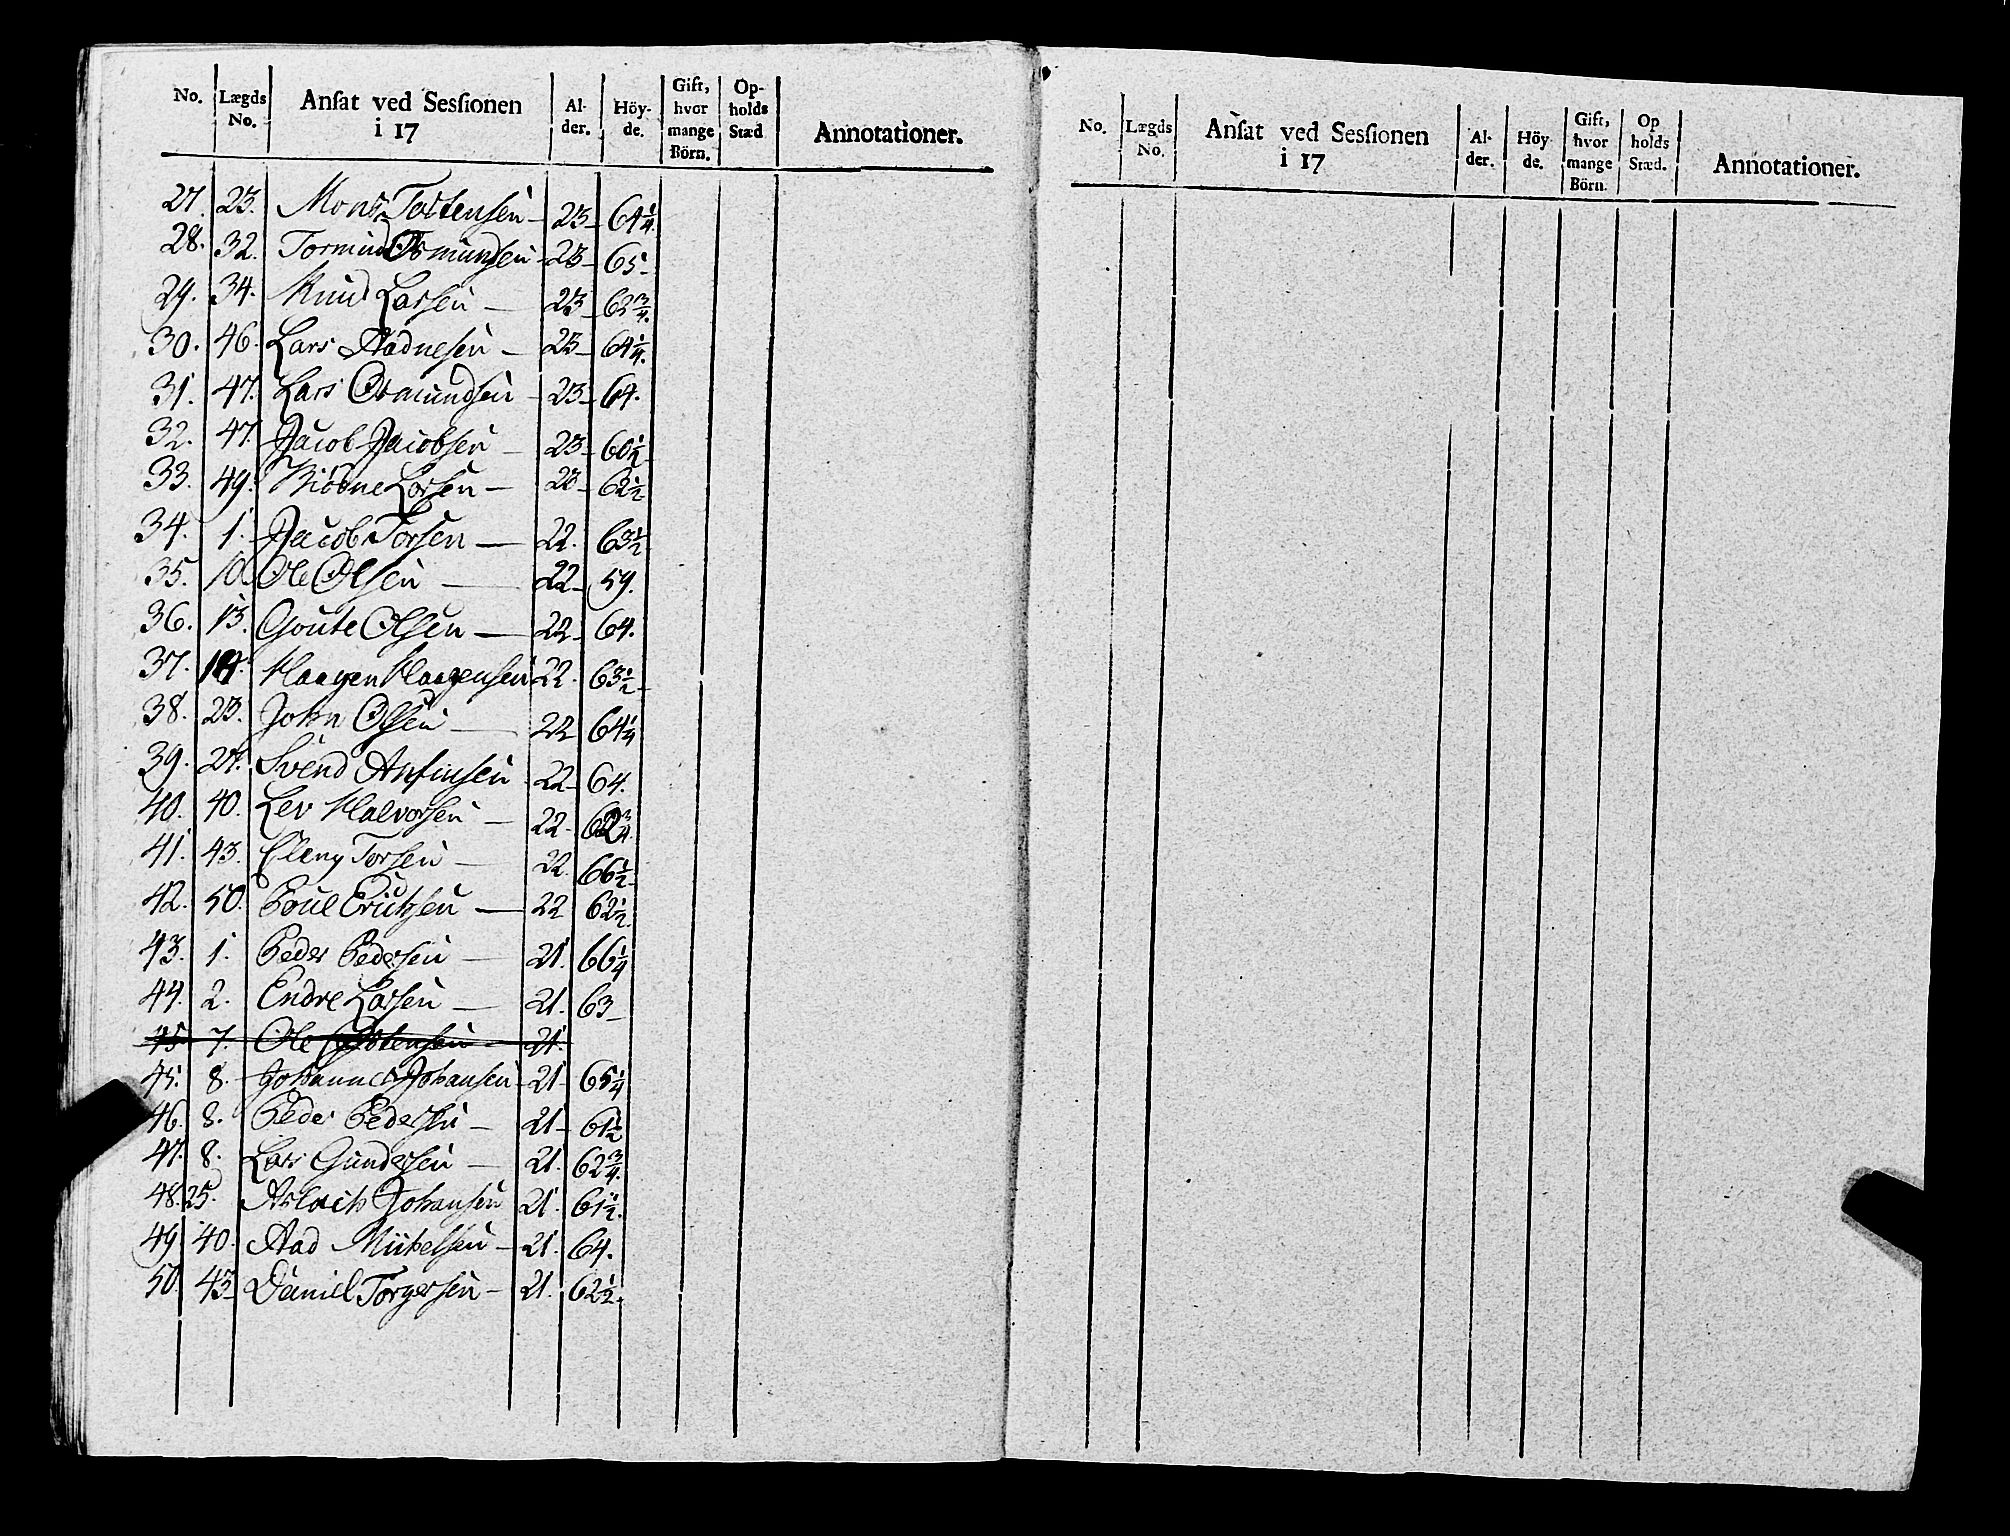 No. Lægds No. Ansat ved Sessionen i 17 Alder. Höyde. Gift, hvor mange Börn. Opholds Stæd Annotationer.
27. 23. Mons Tostensen - 23 - 64 1/4.
28. 32. Tormund Osmundsen - 23 - 65 -
29. 34. Knud Larsen - 23 - 62 3/4.
30. 46. Lars Aadnesen - 23 - 64 1/4.
31. 47. Lars Osmundsen - 23 - 64.
32. 47. Jacob Jacobsen - 23 - 60 1/2
33. 49. Larsen - 23 - 62 1/2
34. 1. Jacob Torsen - 22. 63 1/2
35. 10. Ole Olsen - 22 - 59.
36. 13. Goute Olsen - 22 - 64.
37. Haagen Haagensen 22. 63 1/2 -
38. 23. John Olsen - 22 64 1/4
39. 24. Svend Anfinsen - 22 - 64.
40. 40. Lev Halvorsen - 22 - 62 3/4.
41. 43. Eleng Torsen - 22. 66 1/2
42. 50. Poul Erichsen - 22 62 1/2.
43. 1. Peder Pedersen - 21. 66 1/4
44. 2. Endre Larsen - 21. 63 -
45 7. Ole - 21.
45. 8. Johannes Johansen - 21 - 65 1/4
46. 8. Peder Pedersen - 21 - 61 1/2
47. 8. Lars Gundersen - 21. 62 3/4.
48. 25. Aslach Johansen 21. 61 1/2.
49 40. Aad Mickelsen - 21. 64.
50. 43 - Daniel Torgersen - 21. 62 1/2.
No. Lægds No. Ansat ved Sessionen i 17 Alder. Höyde. Gift, hvor mange Börn. Opholds Stæd. Annotationer.